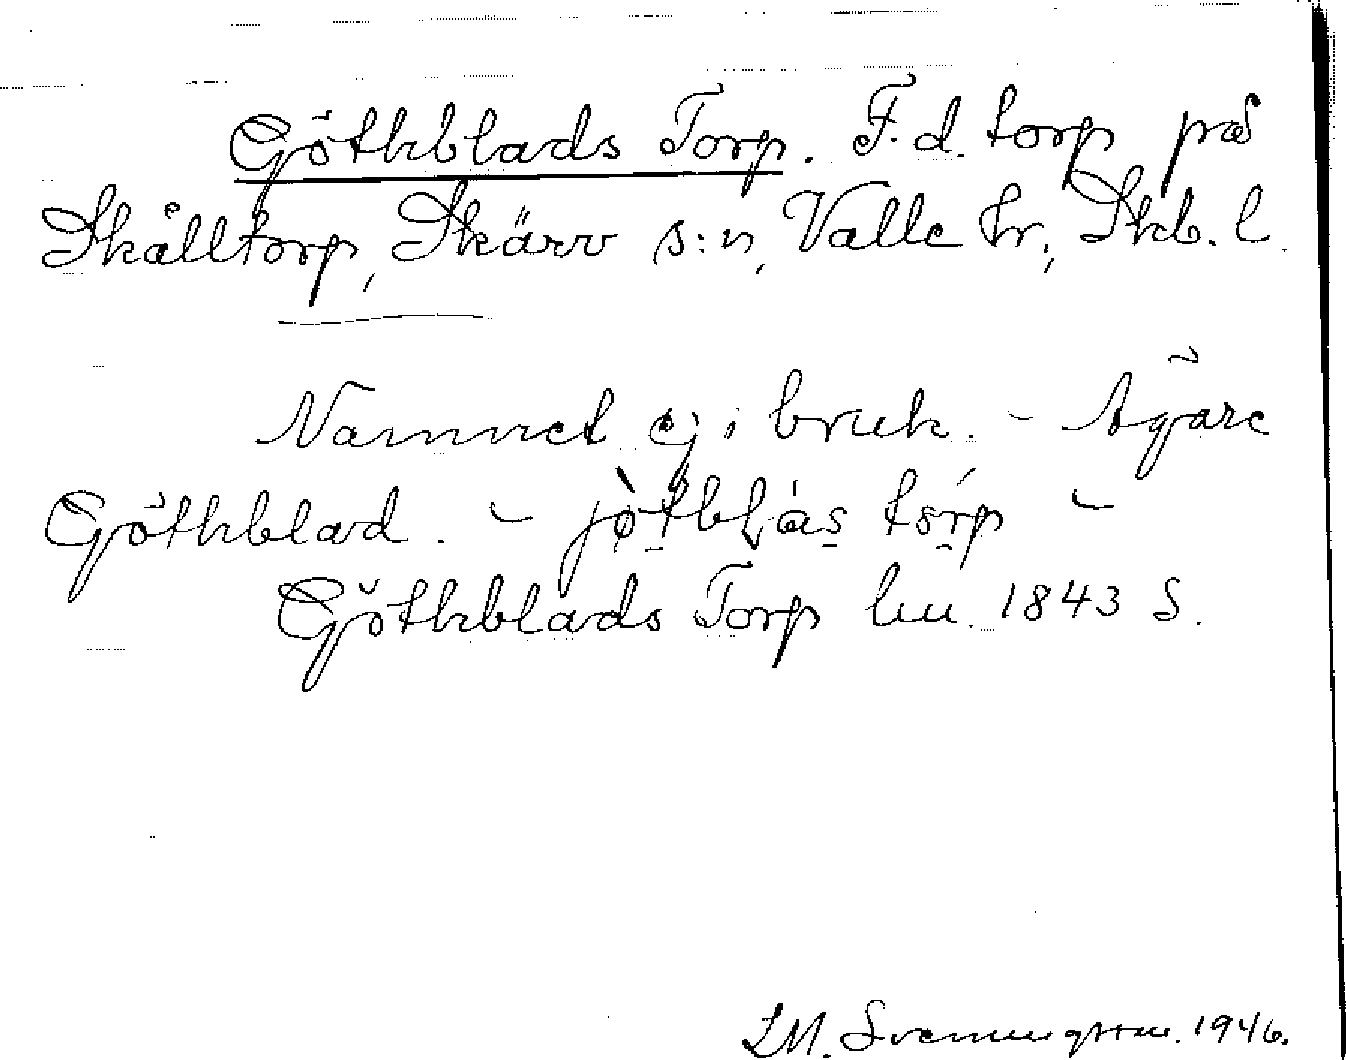 Göthblads Torp. F. d. torp på
Skålltorp, Skärv s:n, Valle hr, Skb. l.
Namnet ej i bruk. - Ägare
Göthblad. - jò̤tbḷás tórp -
Göthblads Torp hu. 1843 S.
LM. Svenungsson. 1946.